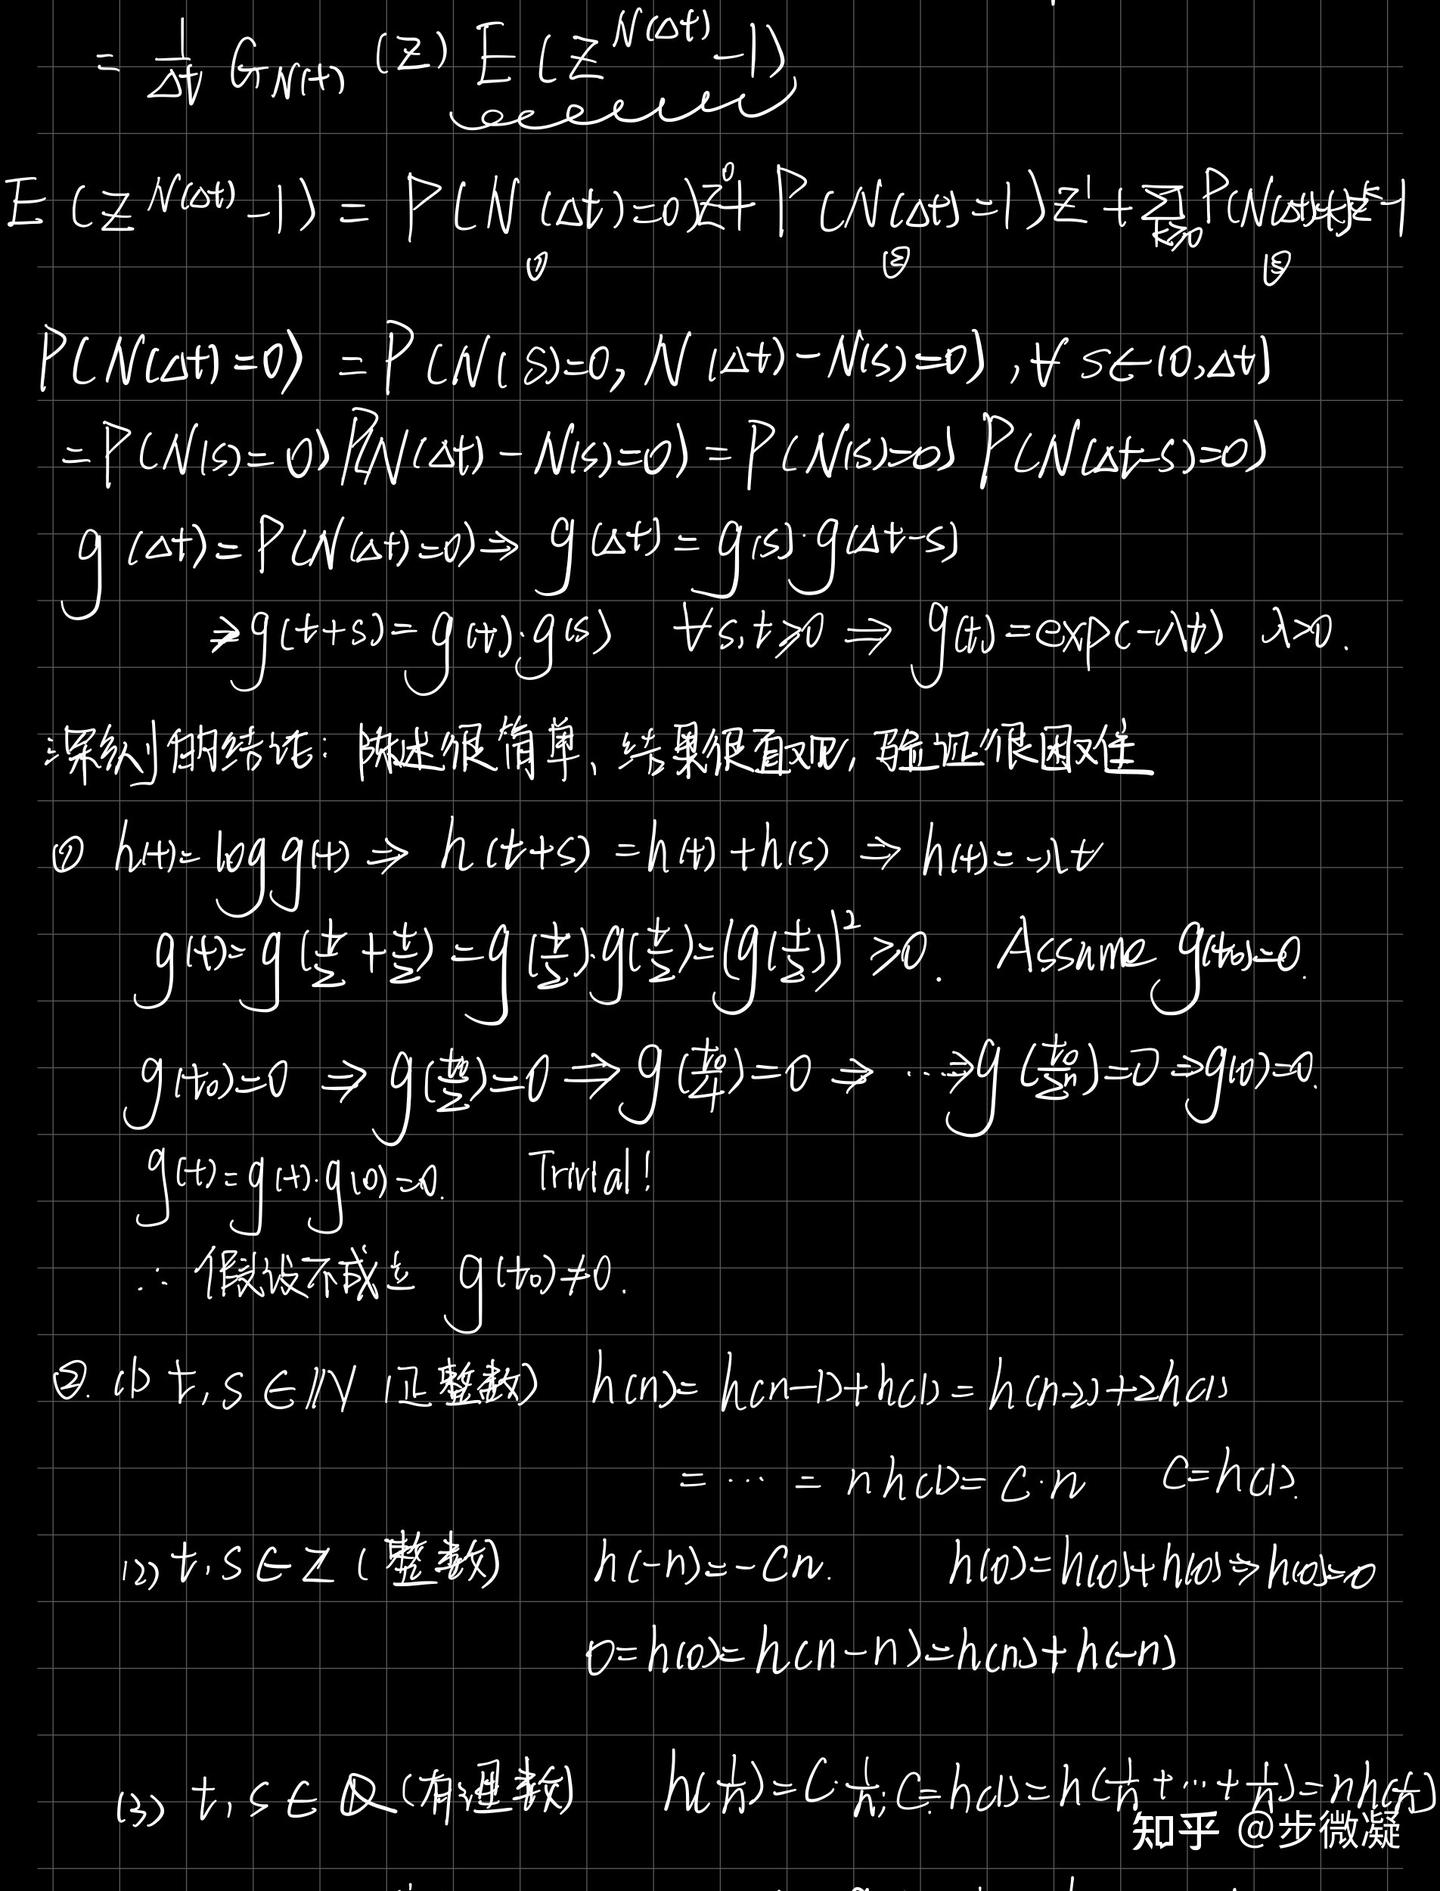 = 1/Δt G_{N(t)} (z) E(z^{N(Δt)} -1)
E(z^{N(Δt)} -1) = P(N(Δt)=0)z^0 + P(N(Δt)=1)z^1 + Σ_{k≥0} P(N(Δt)=k)z^k -1
① ② ③
P(N(Δt)=0) = P(N(s)=0, N(Δt)-N(s)=0), ∀ s∈(0,Δt]
=P(N(s)=0) P(N(Δt)-N(s)=0) = P(N(s)=0) P(N(Δt-s)=0)
g(Δt)=P(N(Δt)=0) ⇒ g(Δt)=g(s)·g(Δt-s)
⇒ g(t+s)=g(t)·g(s) ∀s,t≥0 ⇒ g(t)=exp(-λt) λ>0.
深刻的结论: 陈述很简单, 结果很直观, 验证很困难
① h(t)=log g(t) ⇒ h(t+s)=h(t)+h(s) ⇒ h(t)=-λt
g(t)=g(t/2+t/2)=g(t/2)·g(t/2)=(g(t/2))^2≥0. Assume g(t₀)=0.
g(t₀)=0 ⇒ g(t₀/2)=0 ⇒ g(t₀/4)=0 ⇒ ⋯ ⇒ g(t₀/2^n)=0 ⇒ g(0)=0.
g(t)=g(t)·g(0)=0. Trivial!
∴ 假设不成立 g(t₀)≠0.
②. (1) t,s∈ℕ (正整数) h(n)=h(n-1)+h(1)=h(n-2)+2h(1)
= ⋯ = nh(1)=C·n C=h(1).
(2) t,s∈Z (整数) h(-n)=-Cn. h(0)=h(0)+h(0)⇒h(0)=0
0=h(0)=h(n-n)=h(n)+h(-n)
(3) t,s∈ℚ (有理数) h(1/n)=C·1/n; C=h(1)=h(1/n+⋯+1/n)=nh(1/n)
知乎 @步微凝